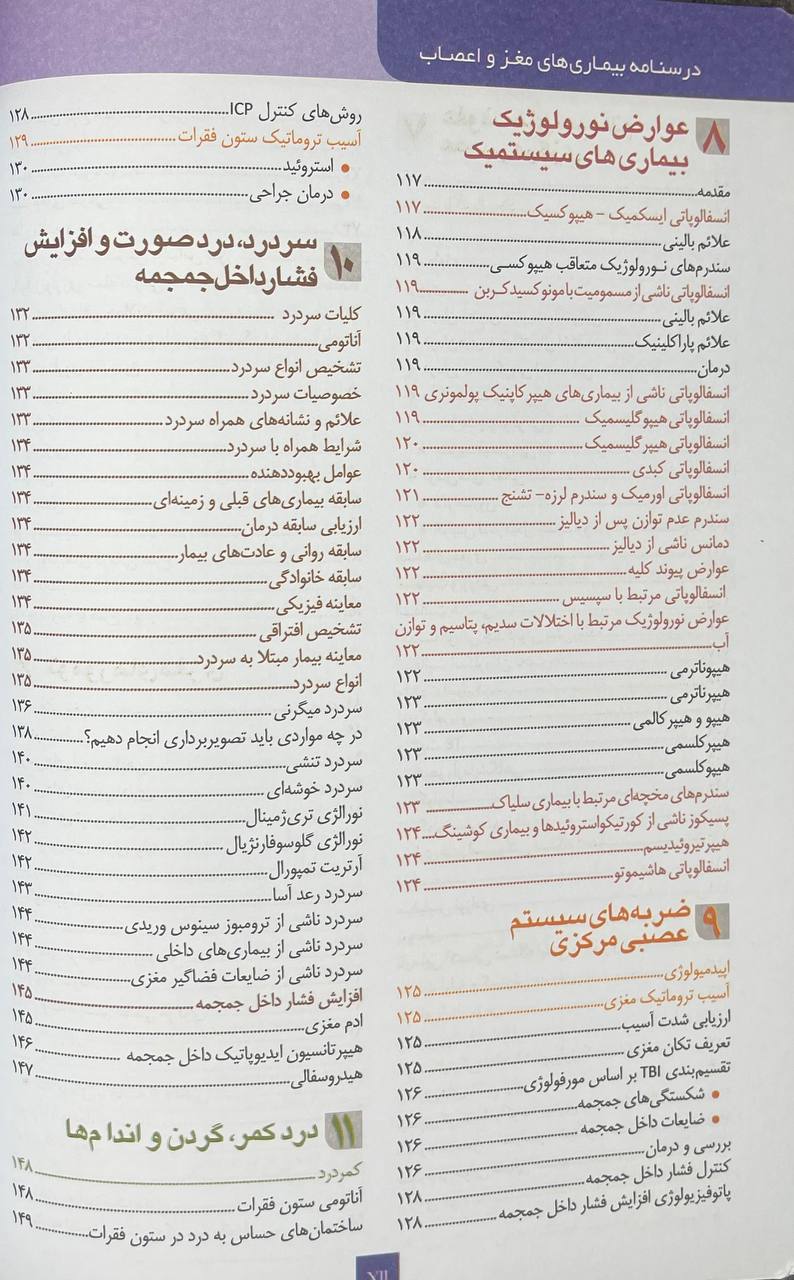 درسنامه بیماری‌های مغز و اعصاب
۸ عوارض نورولوژیک
بیماری‌های سیستمیک
مقدمه ۱۱۷
انسفالوپاتی ایسکمیک - هیپوکسیک ۱۱۷
علائم بالینی ۱۱۸
سندرم‌های نورولوژیک متعاقب هیپوکسی ۱۱۹
انسفالوپاتی ناشی از مسمومیت با مونوکسید کربن ۱۱۹
علائم بالینی ۱۱۹
علائم پاراکلینیک ۱۱۹
درمان ۱۱۹
انسفالوپاتی ناشی از بیماری‌های هیپرکاپنیک پولمونری ۱۱۹
انسفالوپاتی هیپوگلیسمیک ۱۱۹
انسفالوپاتی هیپرگلیسمیک ۱۲۰
انسفالوپاتی کبدی ۱۲۰
انسفالوپاتی اورمیک و سندرم لرزه- تشنج ۱۲۱
سندرم عدم توازن پس از دیالیز ۱۲۲
دمانس ناشی از دیالیز ۱۲۲
عوارض پیوند کلیه ۱۲۲
انسفالوپاتی مرتبط با سپسیس ۱۲۲
عوارض نورولوژیک مرتبط با اختلالات سدیم، پتاسیم و توازن
آب ۱۲۲
هیپوناترمی ۱۲۲
هیپرناترمی ۱۲۳
هیپو و هیپرکالمی ۱۲۳
هیپرکلسمی ۱۲۳
هیپوکلسمی ۱۲۳
سندرم‌های مخچه‌ای مرتبط با بیماری سلیاک ۱۲۳
پسیکوز ناشی از کورتیکواستروئیدها و بیماری کوشینگ ۱۲۴
هیپرتیروئیدیسم ۱۲۴
انسفالوپاتی هاشیموتو ۱۲۴
۹ ضربه‌های سیستم
عصبی مرکزی
اپیدمیولوژی ۱۲۵
آسیب تروماتیک مغزی ۱۲۵
ارزیابی شدت آسیب ۱۲۵
تعریف تکان مغزی ۱۲۵
تقسیم‌بندی TBI بر اساس مورفولوژی ۱۲۶
• شکستگی‌های جمجمه ۱۲۶
• ضایعات داخل جمجمه ۱۲۶
بررسی و درمان ۱۲۶
کنترل فشار داخل جمجمه ۱۲۸
پاتوفیزیولوژی افزایش فشار داخل جمجمه ۱۲۸
روش‌های کنترل ICP ۱۲۸
آسیب تروماتیک ستون فقرات ۱۲۹
• استروئید ۱۳۰
• درمان جراحی ۱۳۰
۱۰ سردرد، درد صورت و افزایش
فشار داخل جمجمه
کلیات سردرد ۱۳۲
آناتومی ۱۳۲
تشخیص انواع سردرد ۱۳۳
خصوصیات سردرد ۱۳۳
علائم و نشانه‌های همراه سردرد ۱۳۳
شرایط همراه با سردرد ۱۳۴
عوامل بهبوددهنده ۱۳۴
سابقه بیماری‌های قبلی و زمینه‌ای ۱۳۴
ارزیابی سابقه درمان ۱۳۴
سابقه روانی و عادت‌های بیمار ۱۳۴
سابقه خانوادگی ۱۳۴
معاینه فیزیکی ۱۳۴
تشخیص افتراقی ۱۳۵
معاینه بیمار مبتلا به سردرد ۱۳۵
انواع سردرد ۱۳۵
سردرد میگرنی ۱۳۶
در چه مواردی باید تصویربرداری انجام دهیم؟ ۱۳۸
سردرد تنشی ۱۴۰
سردرد خوشه‌ای ۱۴۰
نورالژی تری‌ژمینال ۱۴۱
نورالژی گلوسوفارنژیال ۱۴۲
آرتریت تمپورال ۱۴۲
سردرد رعد آسا ۱۴۳
سردرد ناشی از ترومبوز سینوس وریدی ۱۴۴
سردرد ناشی از بیماری‌های داخلی ۱۴۴
سردرد ناشی از ضایعات فضاگیر مغزی ۱۴۴
افزایش فشار داخل جمجمه ۱۴۵
ادم مغزی ۱۴۵
هیپرتانسیون ایدیوپاتیک داخل جمجمه ۱۴۶
هیدروسفالی ۱۴۷
۱۱ درد کمر، گردن و اندام‌ها
کمردرد ۱۴۸
آناتومی ستون فقرات ۱۴۸
ساختمان‌های حساس به درد در ستون فقرات ۱۴۹
XII